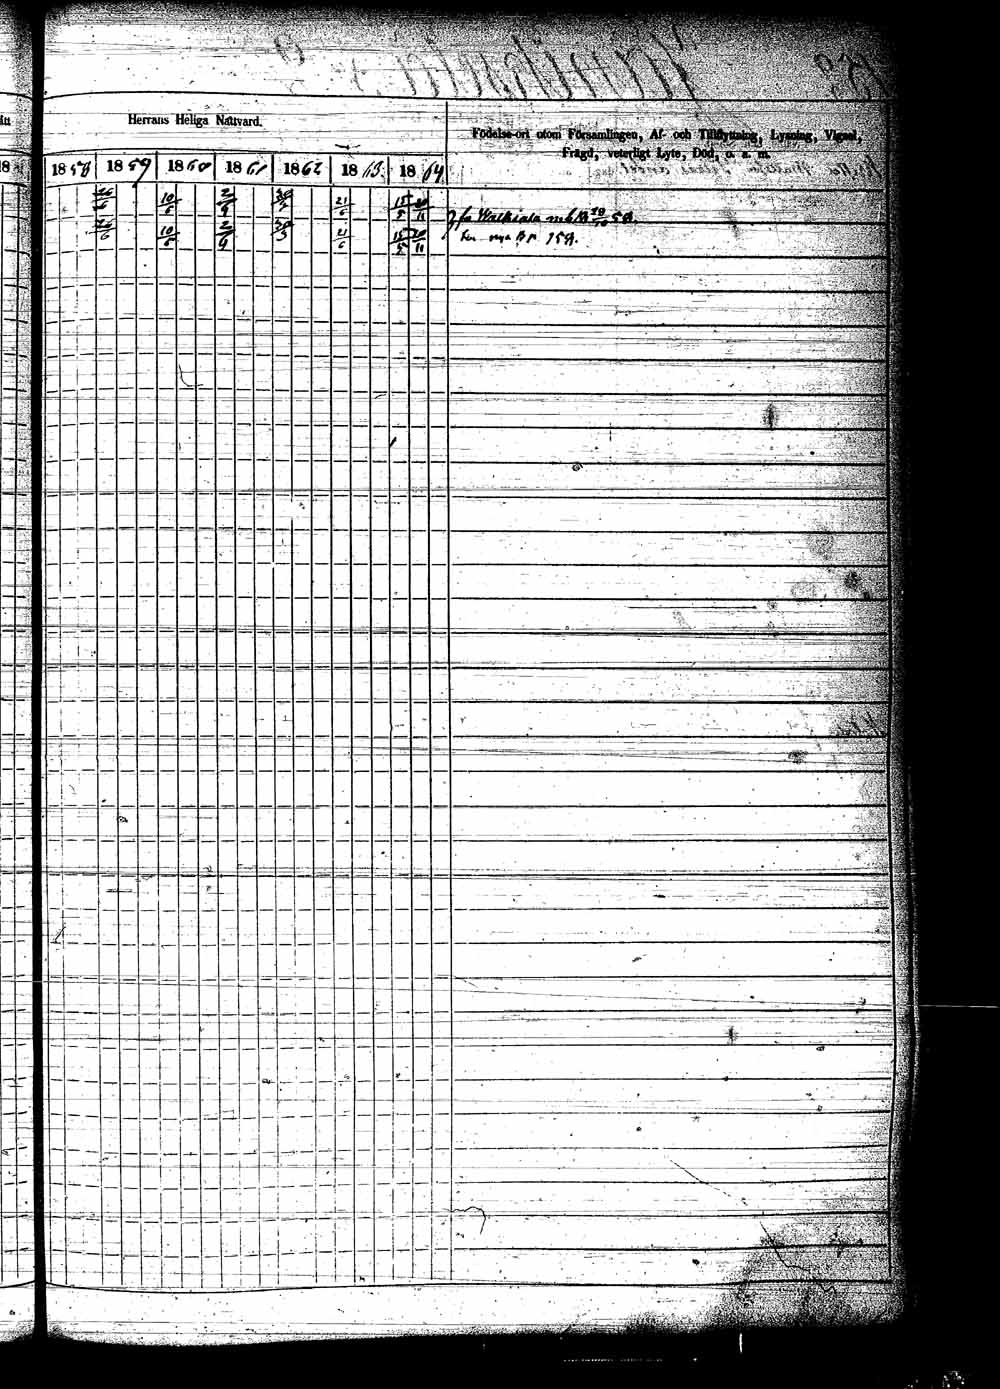 Herrans Heliga Nattvard.
Födelse-ort utom Församlingen, Af- och Tillflyttning, Lysning, Vigsel,
Frägd, veterligt Lyte, Död, o. s. m.
1858 1859 1860 1861 1862 1863 1864
26/6 10/6 2/9 30/3 21/6 15/5 20/11
fr Walkiala 58.
26/6 10/6 2/9 30/3 21/6 15/5 20/11
nya B p 159.